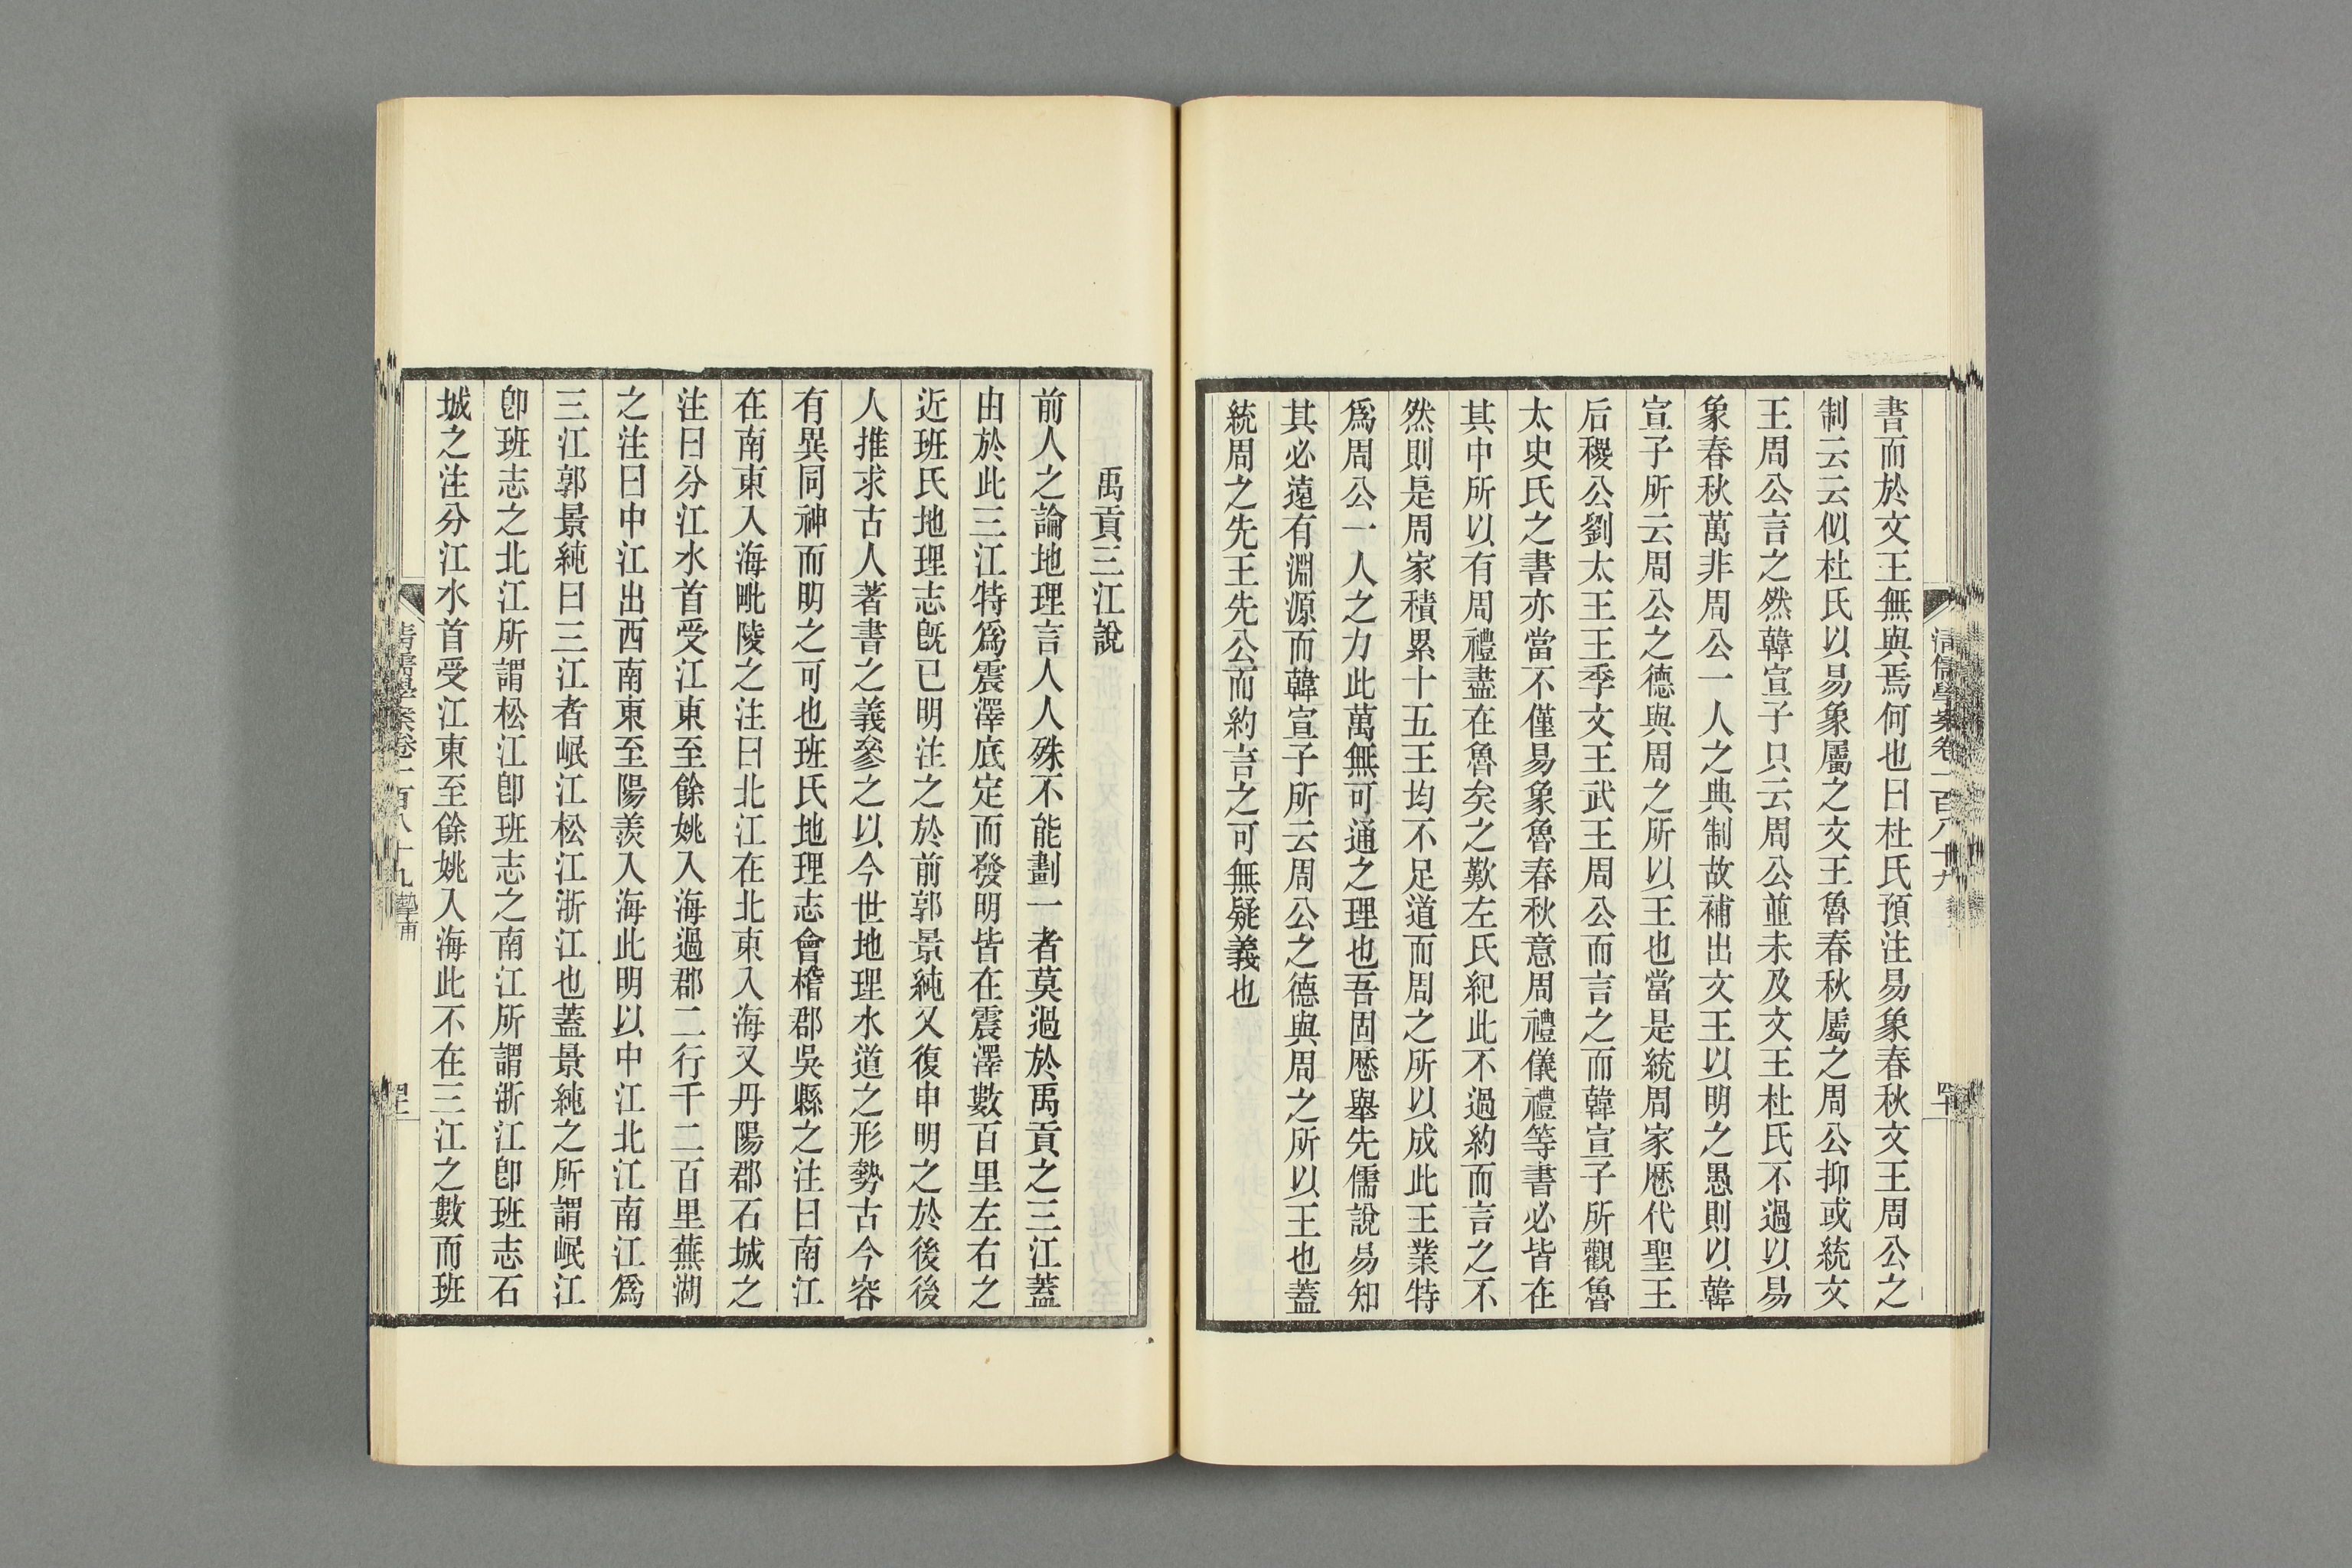 書而於文王無與焉何也曰杜氏預注易象春秋文王周公之
制云云似杜氏以易象屬之文王魯春秋屬之周公抑或統文
王周公言之然韓宣子只云周公並未及文王杜氏不過以易
象春秋萬非周公一人之典制故補出文王以明之愚則以韓
宣子所云周公之德與周之所以王也當是統周家歷代聖王
后稷公劉太王王季文王武王周公而言之而韓宣子所觀魯
太史氏之書亦當不僅易象魯春秋意周禮儀禮等書必皆在
其中所以有周禮盡在魯矣之歎左氏紀此不過約而言之不
然則是周家積累十五王均不足道而周之所以成此王業特
爲周公一人之力此萬無可通之理也吾固歷舉先儒說易知
其必遠有淵源而韓宣子所云周公之德與周之所以王也蓋
統周之先王先公而約言之可無疑義也
清儒學案卷一百八十九
禹貢三江說
前人之論地理言人人殊不能劃一者莫過於禹貢之三江蓋
由於此三江特爲震澤底定而發明皆在震澤數百里左右之
近班氏地理志旣已明注之於前郭景純又復申明之於後後
人推求古人著書之義參之以今世地理水道之形勢古今容
有異同神而明之可也班氏地理志會稽郡吳縣之注曰南江
在南東入海毗陵之注曰北江在北東入海又丹陽郡石城之
注曰分江水首受江東至餘姚入海過郡二行千二百里蕪湖
之注曰中江出西南東至陽羨入海此明以中江北江南江爲
三江郭景純曰三江者岷江松江浙江也蓋景純之所謂岷江
卽班志之北江所謂松江卽班志之南江所謂浙江卽班志石
城之注分江水首受江東至餘姚入海此不在三江之數而班
清儒學案卷一百八十九